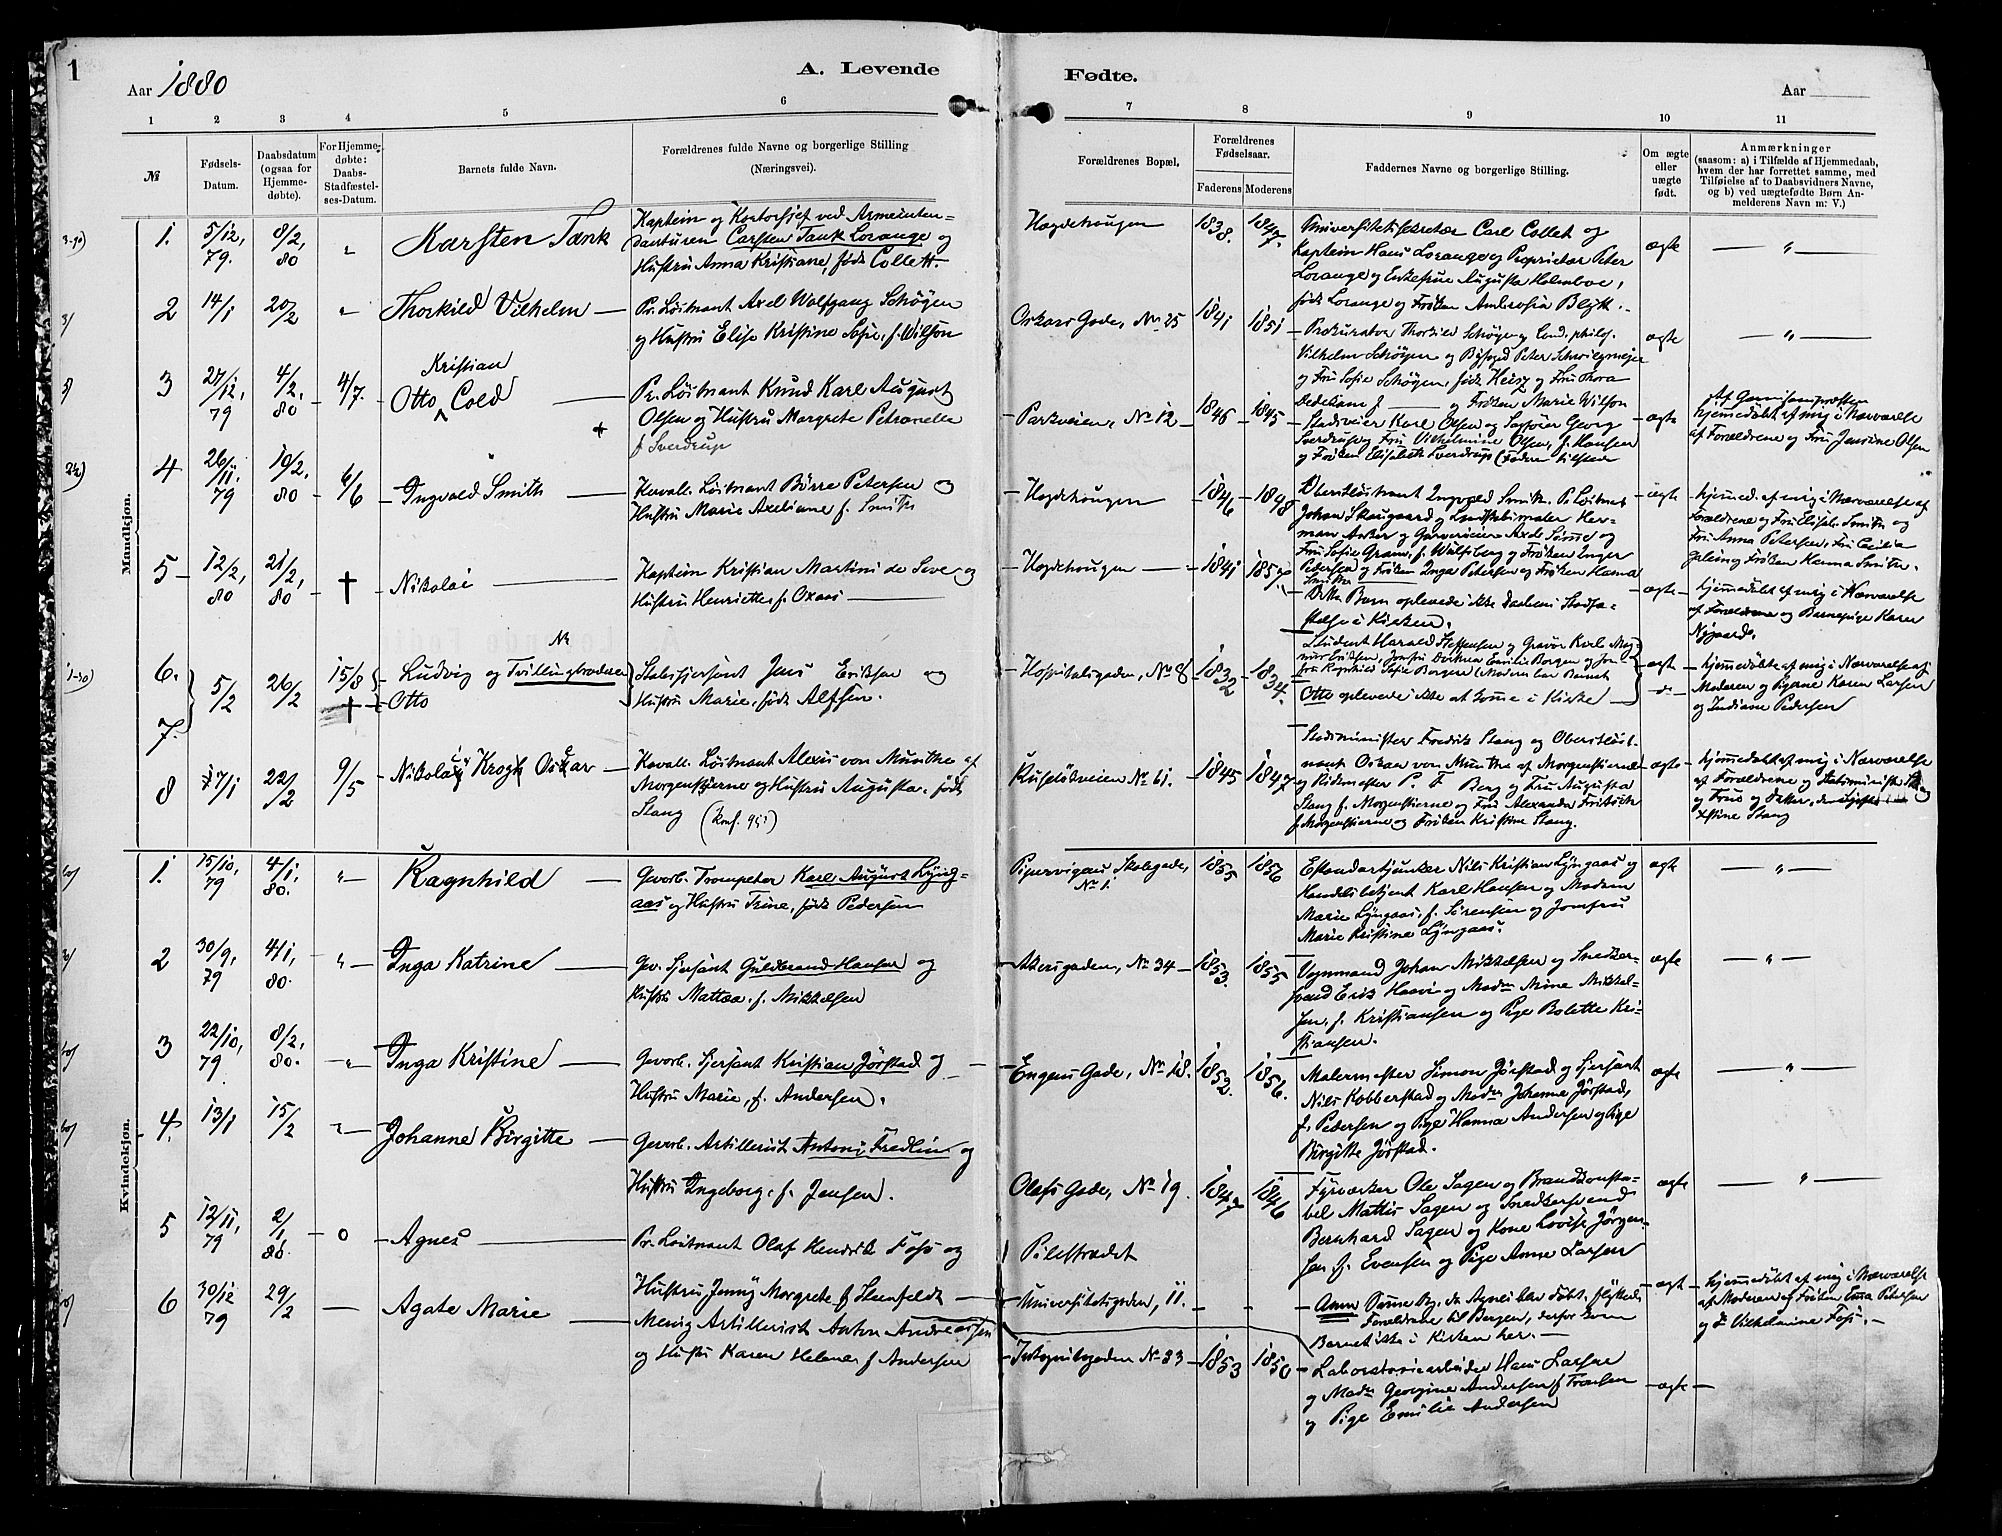 1
Aar 1880
A. Levende
Fødte.
Aar
1 2 3 4 5 6 7 8 9 10 11
№
Fødsels-
Datum.
Daabsdatum
(ogsaa for
Hjemme-
døbte).
For Hjemme-
døbte:
Daabs-
Stadfæstel-
ses-Datum.
Barnets fulde Navn.
Forældrenes fulde Navne og borgerlige Stilling
(Næringsvei).
Forældrenes Bopæl,
Forældrenes
Fødselsaar.
Faderens Moderens
Faddernes Navne og borgerlige Stilling.
Om ægte
eller
uægte
født.
Anmærkninger
(saasom: a) i Tilfælde af Hjemmedaab,
hvem der har forrettet samme, med
Tilføielse af to Daabsvidners Navne,
og b) ved uægtefødte Børn An-
melderens Navn m: V.)
Mandkjøn.
1. 5/12, 79. 8/2, 80 " Karsten Tank
Kaptein og Kontorchef ved Armeinten-
danturen Carsten Tank Lorange og
Hustru Anna Kristiane, født Collett.
Hægdehougen 1838. 1847.
Universitetssekretær Carl Collet og
Kaptein Hans Lorange og Proprietær Peter
Lorange og Enkefrue Augusta Holmboe,
født Lorange og Frøken Ambrosia Blytt.
ægte "
2 14/1 20/2 " Thorkild Vilhelm
Pr. Løitnant Axel Wolfgang Schøgen
og Hustru Elise Kristine Sofie, f. Wilson
Oskars Gade, № 25 1841 1851
Prokurator Thorkild Schøgen og Cand. philos.
Vilhelm Schøyen og Byfoged Peter Schwiegmejer
og Fru Sofie Schøgen, født Heisz og Fru Thora
og Frøken Marie Wilson
ægte "
3 27/12, 79 4/2, 80 4/7. Otto Kristian Cold
Pr. Løitnant Knud Karl August
Olsen og Hustru Margrete Petronelle
f. Sverdrup
Parkveien, № 12 1846 1845
Karl Olsen og Sagfører Georg
Sverdrup og Fru Vilhelmine Olsen, f. Hansen
og Frøken Elisabeth Sverdrup (Faderen tilstede
ægte
Af Garnisonsprosten
hjemmedøbt af mig i Nærværelse
af Forældrene og Fru Jensine Olsen
4 26/11, 79 10/2, 80 6/6 Ingvald Smith
Kavall. Løitnant Børre Petersen og
Hustru Marie Axeliane f. Smith
Hægdehougen 1846 1848
Oberstløitnant Ingvald Smith. P. Løitnant
Johan Skougaard og
man Anker og Garverieier Axel Smith og
Fru Sofie Gram, f. Wulfsberg og Frøken Inger
Petersen og Frøken Inga Petersen og Frøken Hanna
Smith
ægte
hjemmed. af mig i Nærværelse af
Forældrene og Fru Elisab. Smith og
Fru Anna Petersen, Fru Cecilia
og Frøken Hanna Smith.
5 12/2, 80 21/2, 80 † Nikolai
Kaptein Kristian Martini de Seve og
Hustru Henriette f. Oxaas
Hægdehougen 1841 1857
Dette Barn oplevede ikke Daabens Stadfæ-
stelse i Kirken.
ægte
hjemmedøbt af mig i Nærværelse
af Forældrene og Barnepige Karen
Nygaard.
6. 7. 5/2 26/2 15/8 † Ludvig og Tvillingbroderen
Otto
Stabssjersant Jens Eriksen og
Hustru Marie, født Alfsen.
Hospitalsgaden, № 8 1832 1834.
Student Harald Steffensen og Gravør Karl Mag-
nus Eriksen, Jomfru Dorthea Emilie Borgen og Jom-
fru Ragnhild Sofie Borgen (Moderen bar Barnet
Otto oplevede ikke at komme i Kirke
ægte
hjemmedøbte af mig i Nærværelse af
Moderen og Pigerne Karen Larsen
og Indiane Pedersen
8 17/1 22/2 9/5 Nikolay Krogh Oscar
Kavall. Løitnant Alexis von Munthe af
Morgenstjerne og Hustru Augusta, født
Stang (konf. 95)
Ruseløkveien № 61. 1845 1847
Statsminister Fredrik Stang og Oberstløit-
nant Oscar von Munthe af Morgenstierne
og Ridmester P. F. Berg og Fru Augusta
Stang f. Morgenstierne og Fru Alexandra Fritsch
f. Morgenstierne og Frøken Kristine Stang.
ægte
hjemmedøbt af mig i Nærværelse
af Forældrene og Statsminister Stang
Stang
Kvindekjøn.
1. 15/10, 79 4/1, 80. " Ragnhild
Gevorb. Trompeter Karl August Lyng-
aas og Hustru Trine, født Pedersen
Pipervigens Skolegade,
№ 1. 1855 1856
Estandartjunker Nils Kristian Lyngaas og
Handelsbetjent Karl Hansen og Madam
Marie Lyngaas, f. Sørensen og Jomfru
Marie Kristine Lyngaas.
ægte "
2 30/9, 79 4/1, 80. " Inga Katrine
Gev. Sjersant Guldbrand Hansen og
Hustru Mattea, f. Mikkelsen
Akersgaden, № 34 1853. 1855
Vognmand Johan Mikkelsen og Snedker-
svend Erik Haavi og Madm Mine Mikkel-
sen, f. Kristiansen og Pige Bolette Kri-
stiansen.
ægte "
3 22/10, 79 8/2, 80. " Inga Kristine
Gevorb. Sjersant Kristian Jørstad og
Hustru Marie, f. Andersen.
Engens Gade, № 18. 1852. 1856.
Malermester Simon Jørstad og Sjersant
Nils Kobberstad og Madm Johanne Jørstad,
f. Pedersen og Pige Hanna Andersen og Pige
Birgitte Jørstad.
ægte "
4. 13/1 15/2 " Johanne Birgitte
Gevorb. Artillerist Antoni Fredlin og
Hustru Ingeborg, f. Jensen.
Olafs Gade, № 19. 1847 1846
Fyrværker Ole Sagen og Brandkonsta-
bel Mattis Sagen og Snedkersvend
Bernhard Sagen og Kone Lovise Jørgen-
sen f. Evensen og Pige Anne Larsen
ægte "
5 12/11, 79 2/1, 80. 0 Agnes
Pr. Løitnant Olaf Hendrik Foss og
Hustru Jenny Margrete f. Hunfeldt
Pilestrædet
Universitetsgaden, 11.
Anm Samme Dag, da Agnes blev døbt, flyttede
Forældrene til Bergen, derfor kom
Barnet ikke i Kirken her.
ægte
hjemmedøbt af mig i Nærværelse
af Moderen og Frøken Emma Petersen
og F. Vilhelmine Foss.
6 30/12 79 29/2 — Agate Marie
Menig Artillerist Anton Andreassen
og Hustru Karen Helene, f. Andersen
№ 23 1853 1850
Laboratoriearbeider Hans Larsen
og Madm Georgine Andersen f. Tronsen
og Pige Emilie Andersen
ægte